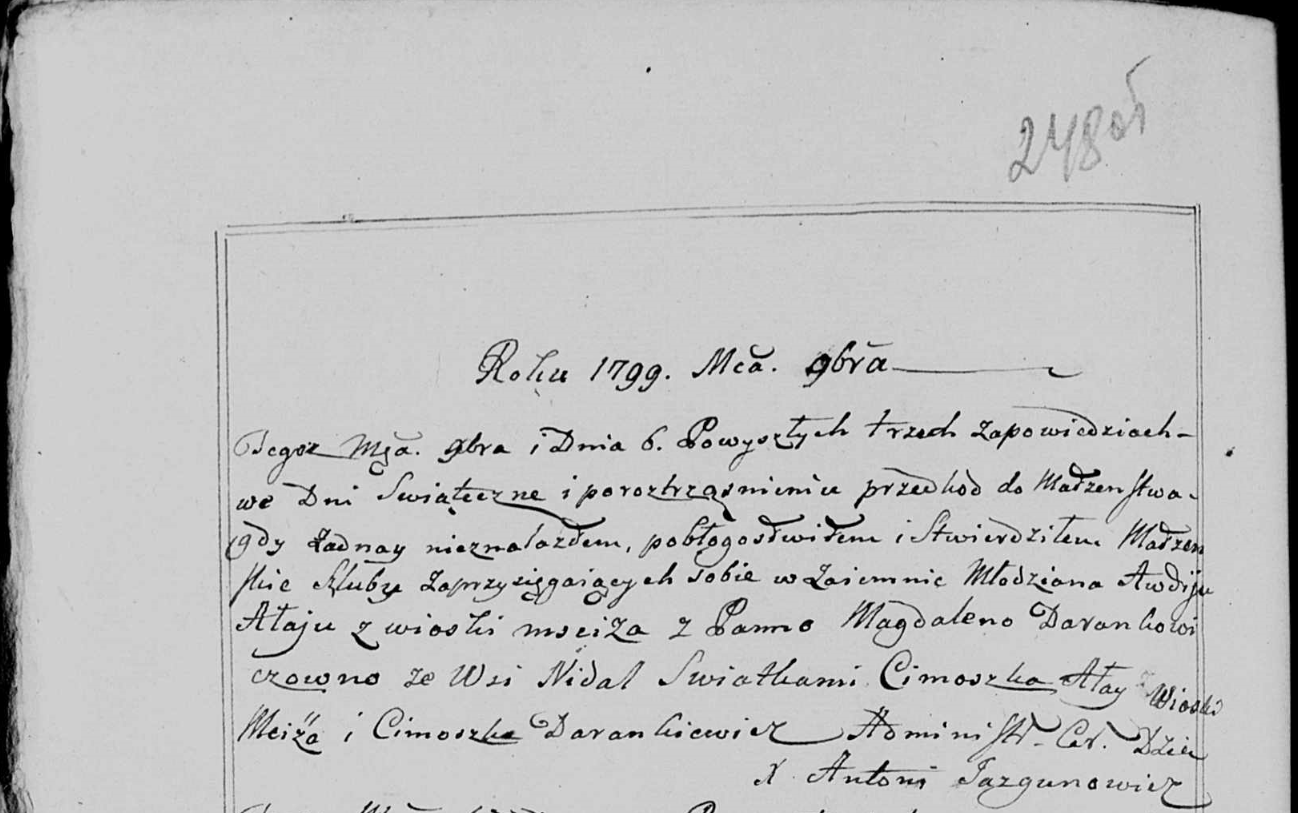 248об
Roku 1799. Mca. 9bra
Tegoz Mca. 9bra i Dnia 6. Powyszłych trzech zapowiedziach
we Dni Swiąteczne i poroztrząsnieniu przedhod do Małzenstwa
gdy Ładnay nieznalazłem, pobłogosłwiłem i Stwierdziłem Małzen
skie Szluby zaprzysięgaiących sobie w zaiemnie Młodziana Awdiju
Ałaju z wioski msciża z Panno Magdaleno Darankowi
czowno ze Wsi Nidal Swiatkami Cimoszka Ałay z Wioski
Mciża i Cimoszka Darankiewicz Administr. Cer. Dzie
X Antoni Jazgunowicz